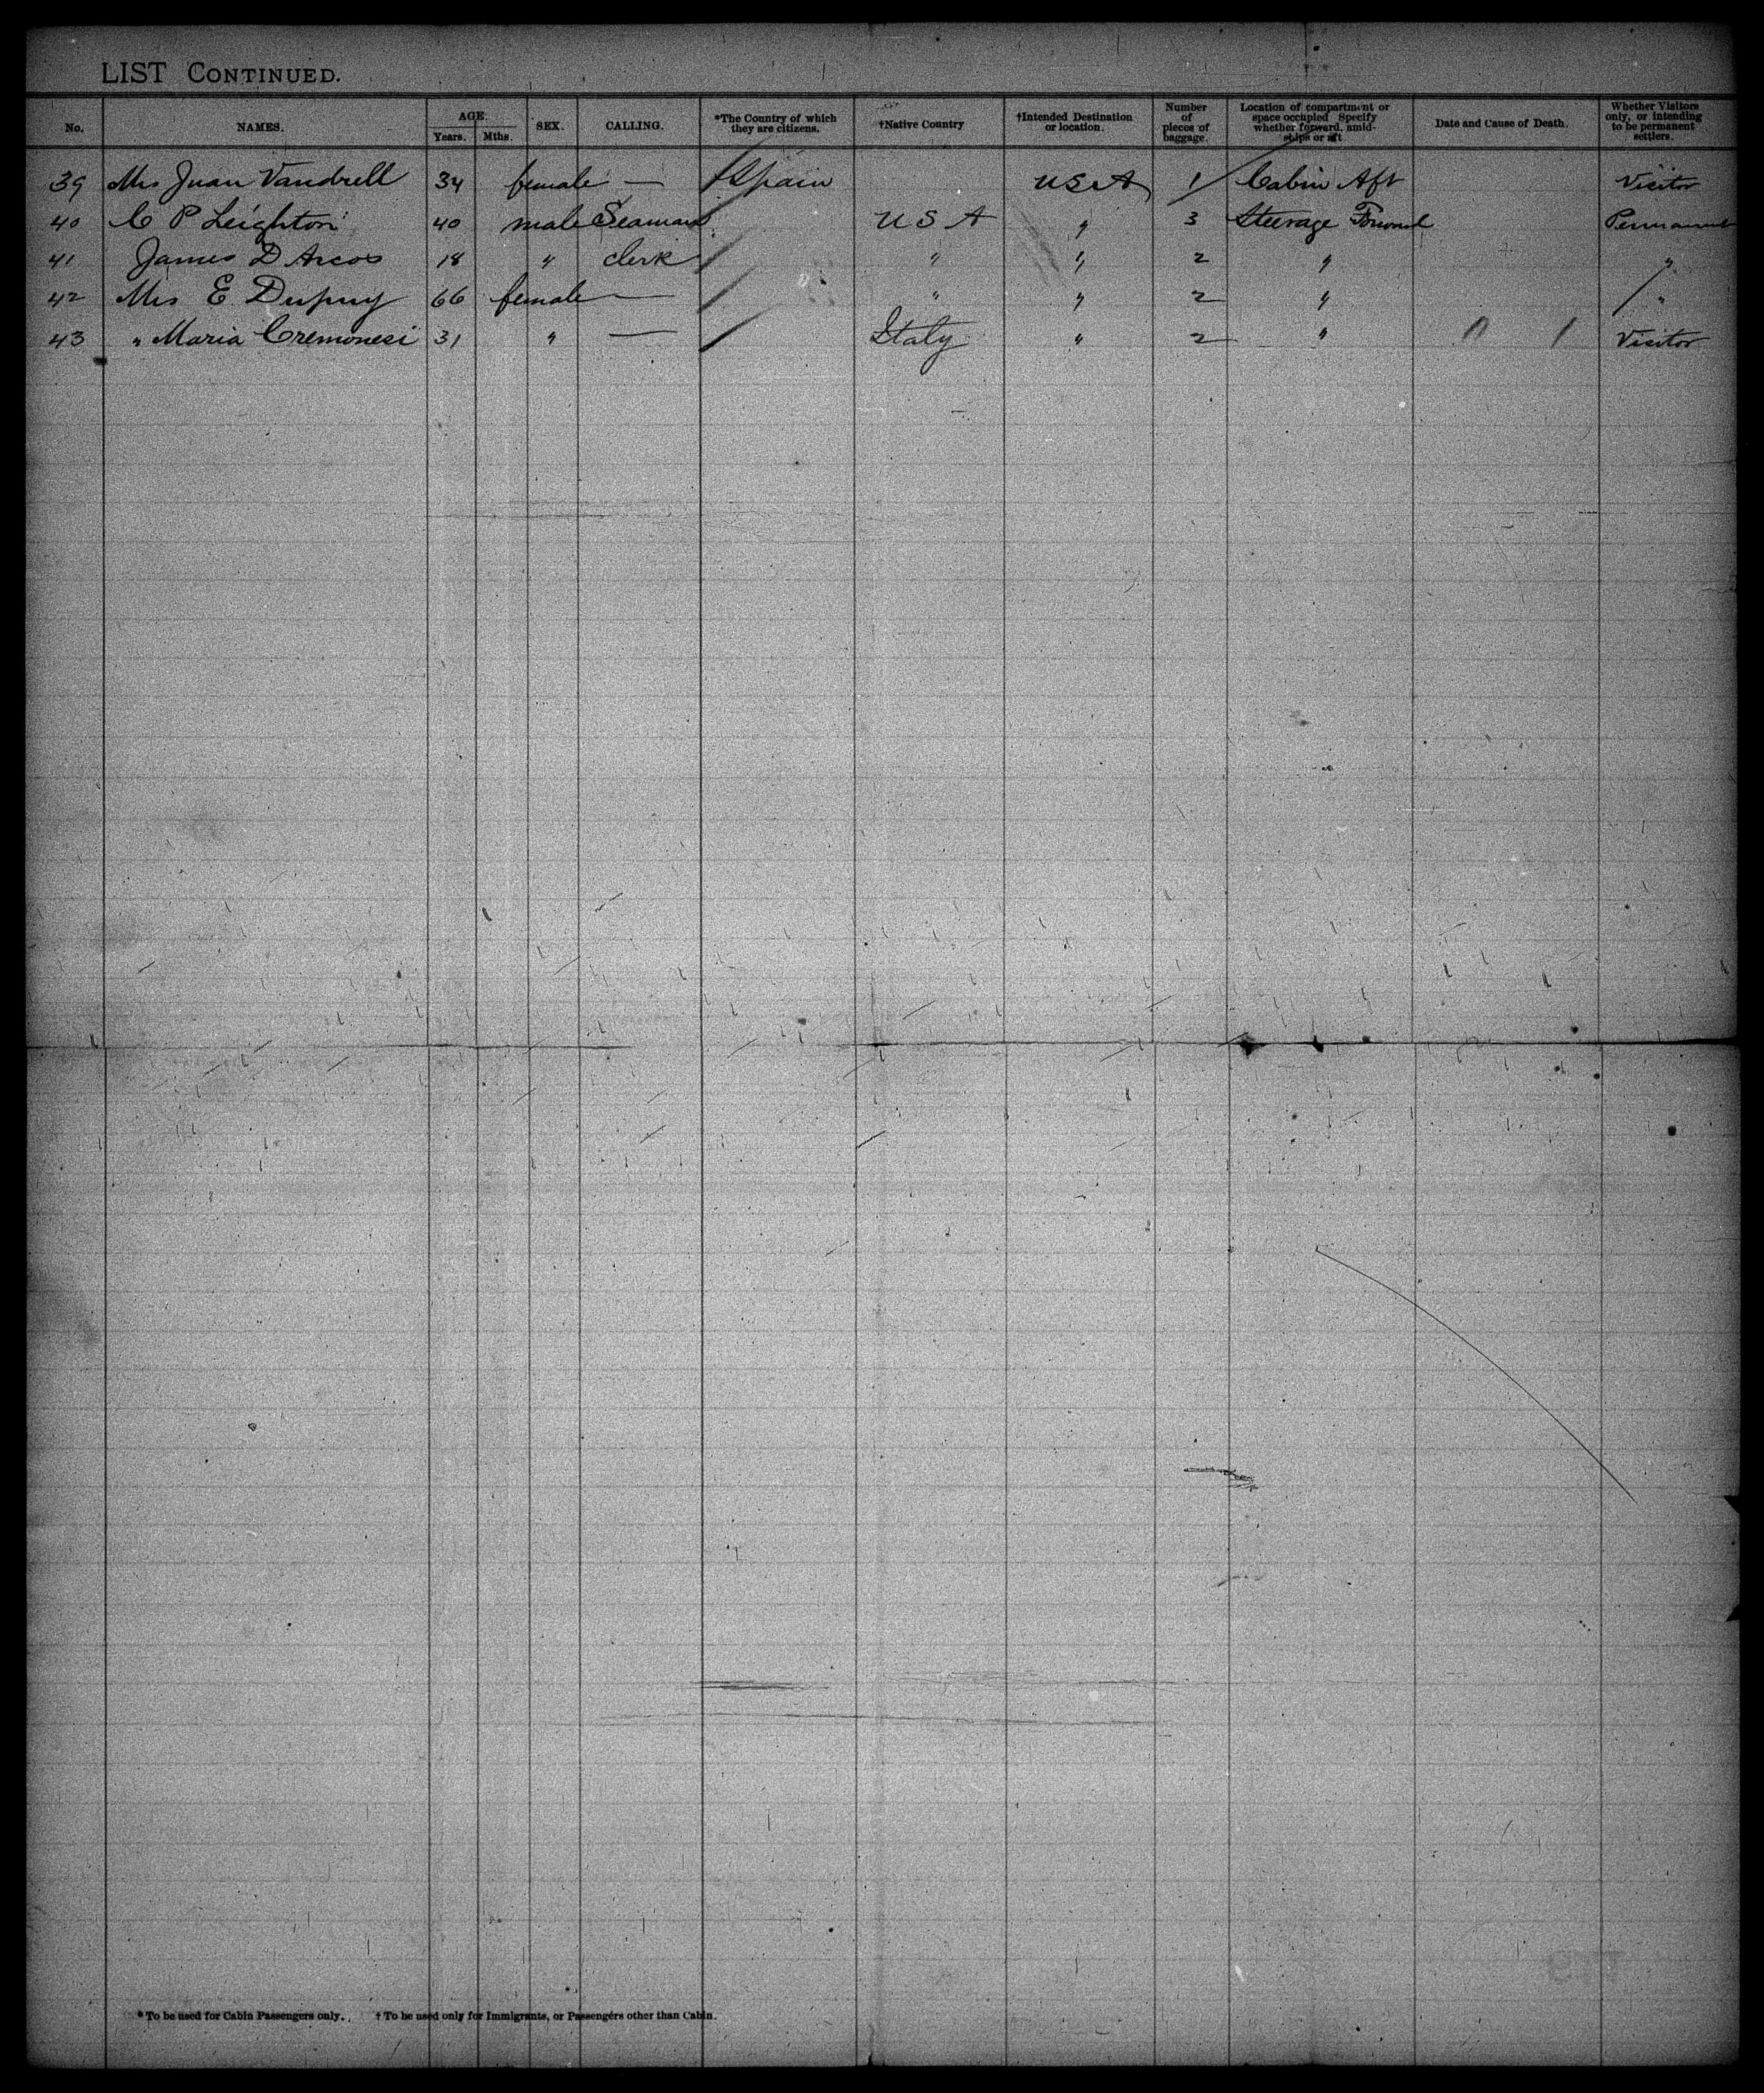 LIST CONTINUED.
No. NAMES. AGE. Years. Mths. SEX. CALLING. *The Country of which they are citizens. †Native Country †Intended Destination or location. Number of pieces of baggage. Location of compartment or space occupied Specify whether forward, amidships or aft Date and Cause of Death. Whether Visitors only, or intending to be permanent settlers.
39 Mrs Juan Vandrell 34 female — Spain USA 1 Cabin Aft Visitor
40 C P Leighton 40 male Seaman U S A " 3 Steerage Forward Permanent
41 James D Arcos 18 " clerk " " 2 " "
42 Mrs E Dupuy 66 female — " " 2 " "
43 " Maria Cremonesi 31 " — Italy " 2 " Visitor
*To be used for Cabin Passengers only. †To be used only for Immigrants, or Passengers other than Cabin.